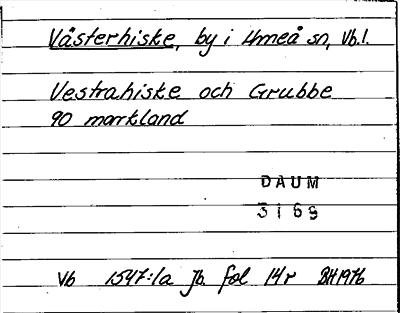 Västerhiske, by i Umeå sn, Vb.l.
Vestrahiske och Grubbe
90 markland
DAUM
3169
Vb 1547:1a Jb. fol 14r BH1976